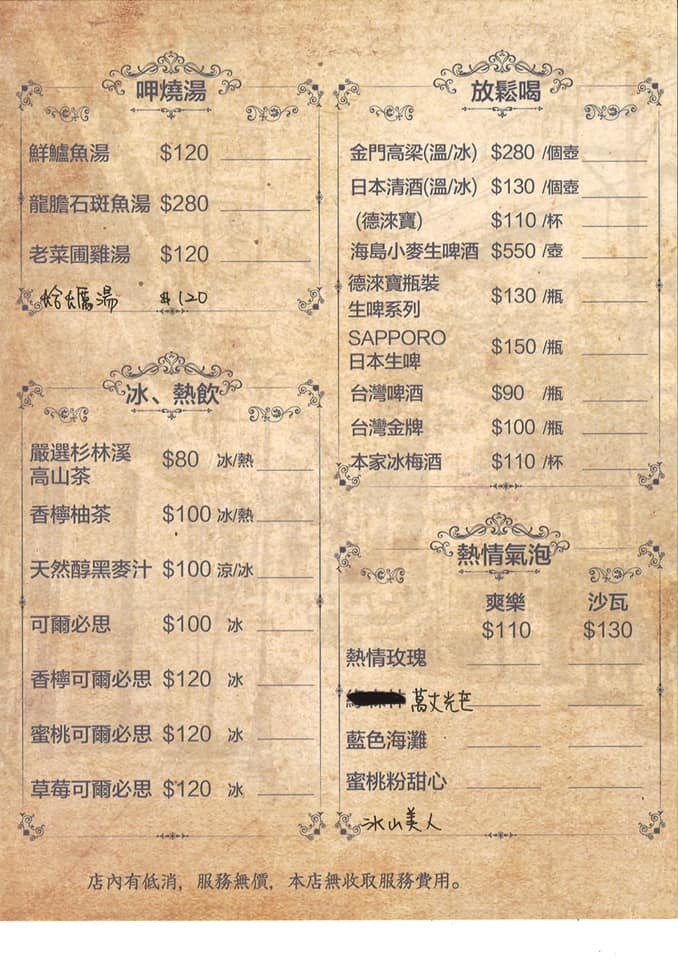 呷燒湯
鮮鱸魚湯 $120
龍膽石斑魚湯 $280
老菜圃雞湯 $120
蛤蠣湯 $120
冰、熱飲
嚴選杉林溪
高山茶 $80 冰/熱
香檸柚茶 $100 冰/熱
天然醇黑麥汁 $100 涼/冰
可爾必思 $100 冰
香檸可爾必思 $120 冰
蜜桃可爾必思 $120 冰
草莓可爾必思 $120 冰
放鬆喝
金門高梁(溫/冰) $280 /個壺
日本清酒(溫/冰) $130 /個壺
(德淶寶) $110 /杯
海島小麥生啤酒 $550 /壺
德淶寶瓶裝
生啤系列 $130 /瓶
SAPPORO
日本生啤 $150 /瓶
台灣啤酒 $90 /瓶
台灣金牌 $100 /瓶
本家冰梅酒 $110 /杯
熱情氣泡
爽樂 沙瓦
$110 $130
熱情玫瑰
萬丈光芒
藍色海灘
蜜桃粉甜心
冰山美人
店內有低消，服務無價，本店無收取服務費用。